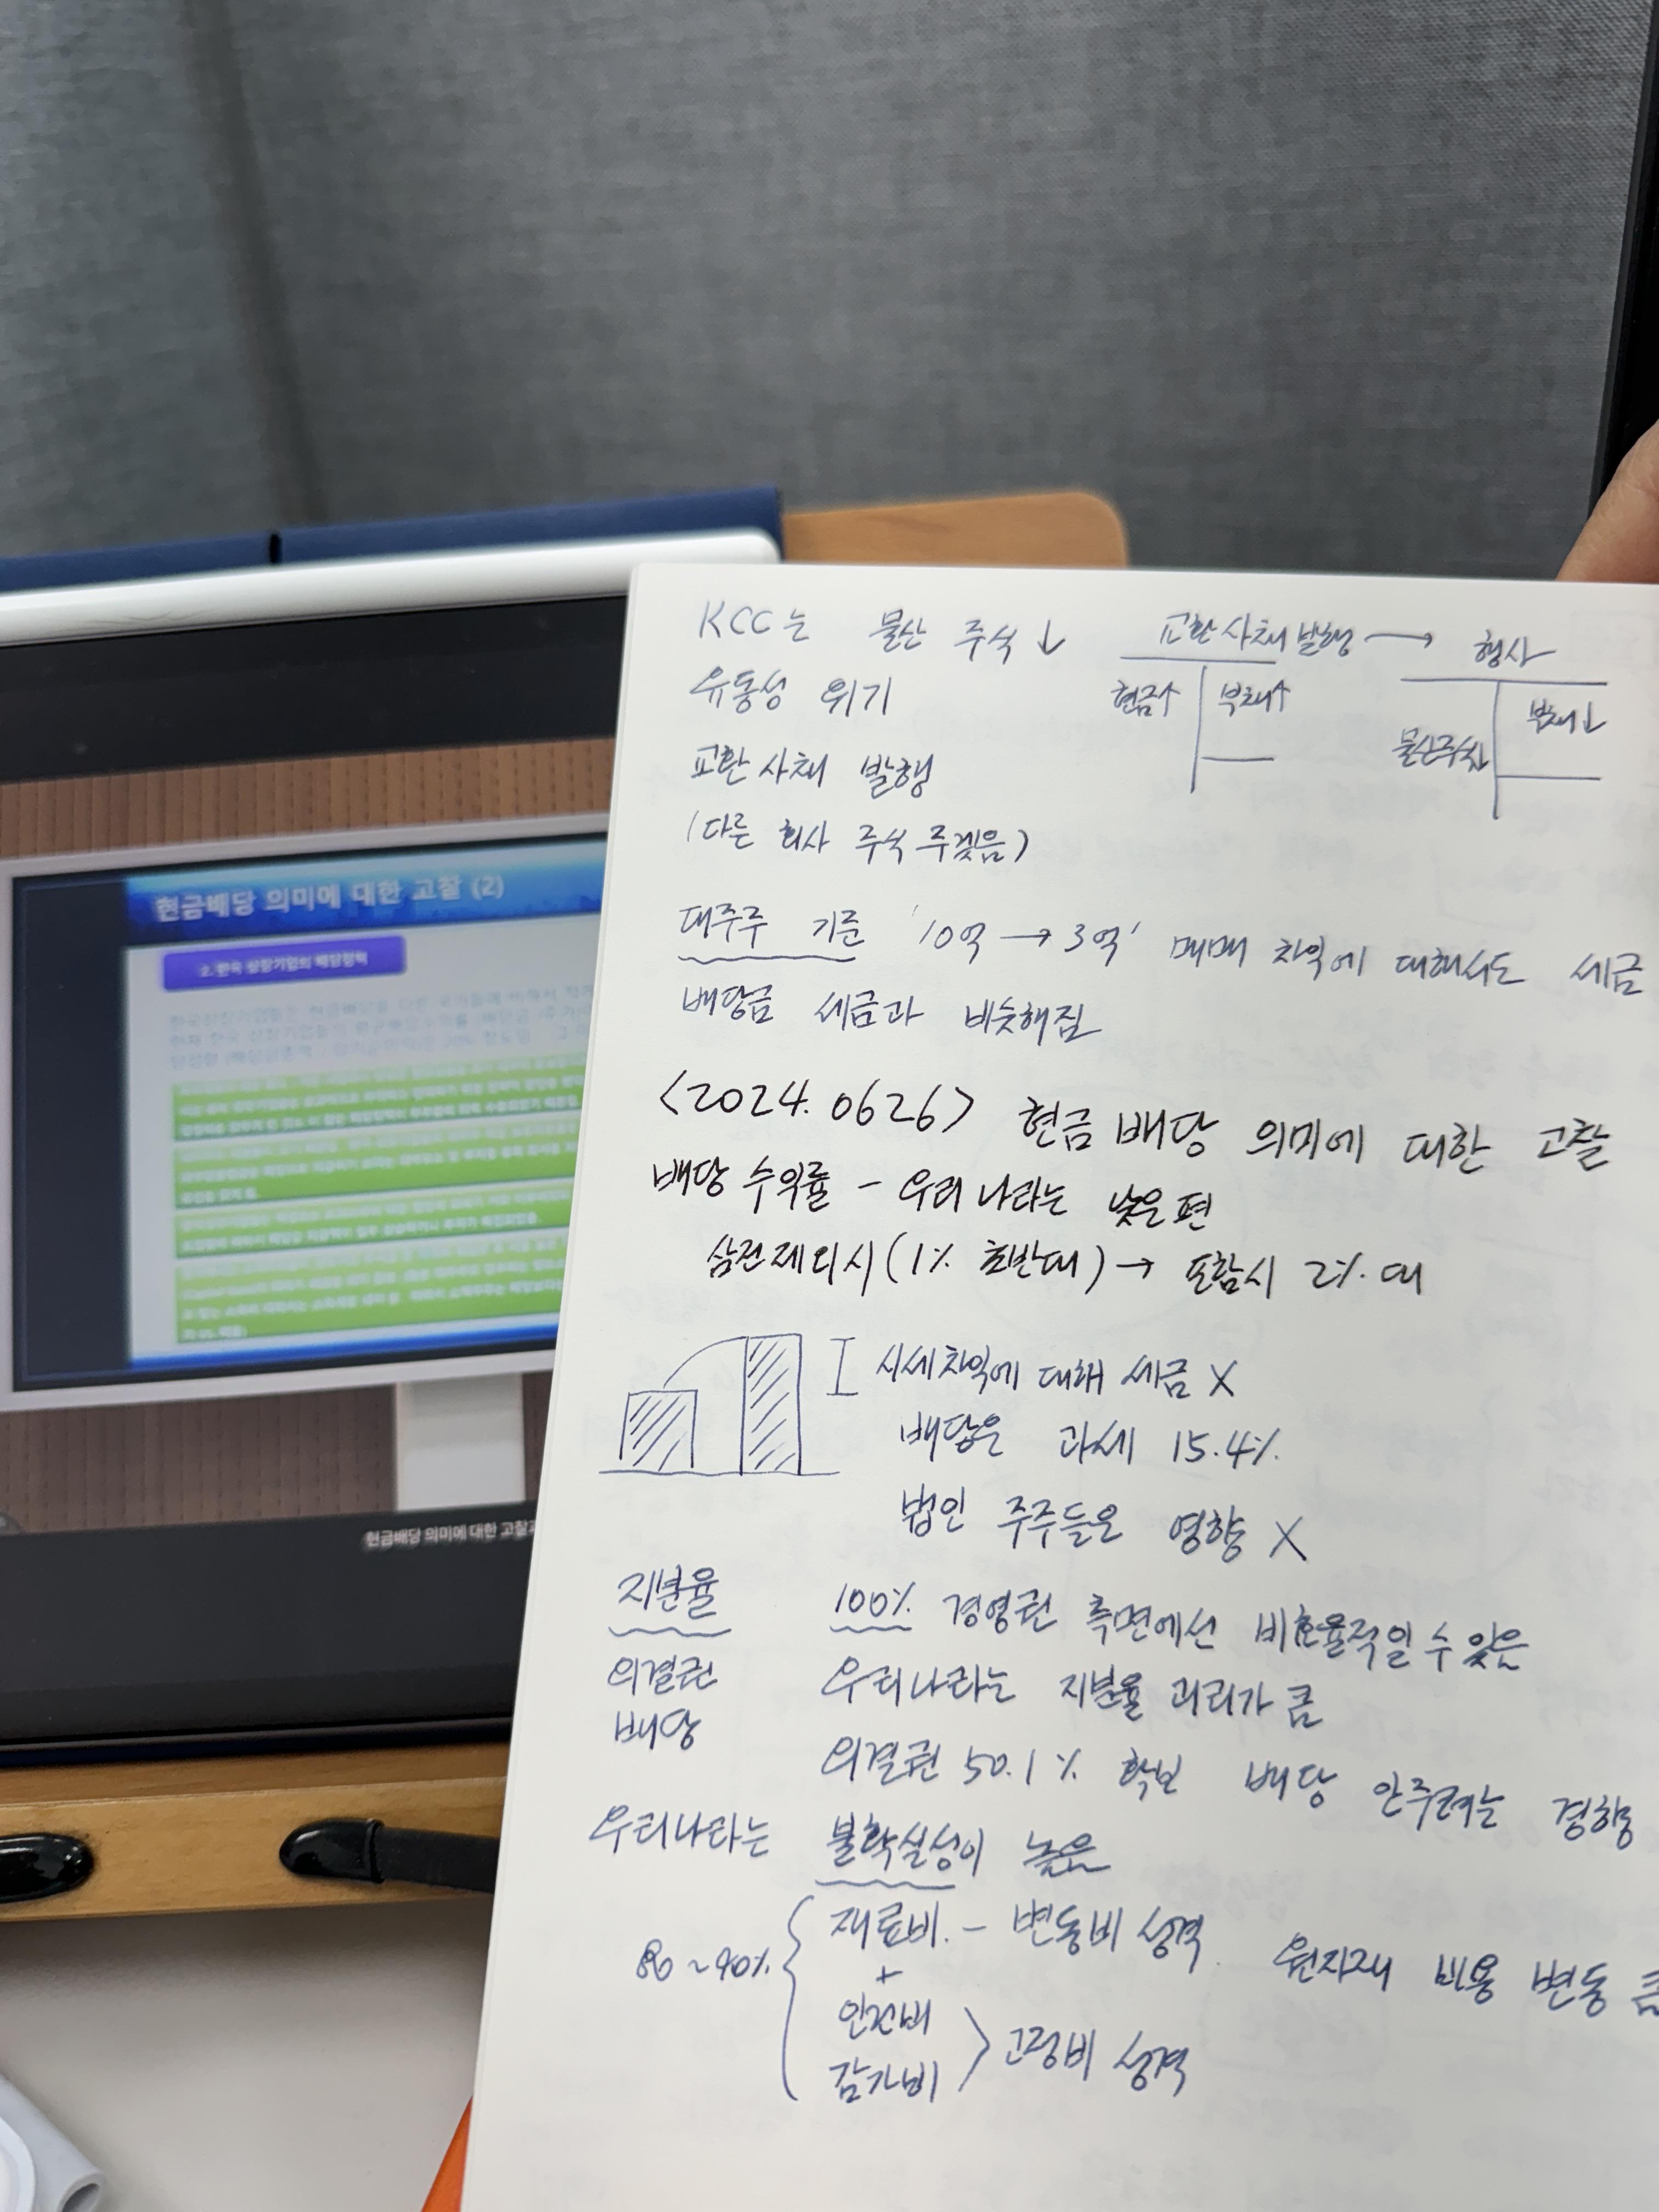 KCC는 물산 주식↓
유동성 위기
교환사채 발행
(다른 회사 주식 주겠음)
교환사채 발행 → 행사
현금↑ 부채↑
물산주식↓ 부채↓
대주주 기준 '10억 → 3억' 매매 차익에 대해서도 세금
배당금 세금과 비슷해짐
<2024.0626> 현금 배당 의미에 대한 고찰
배당 수익률 - 우리나라는 낮은편
삼전제외시(1% 초반대) → 포함시 2%대
시세차익에 대해 세금 X
배당은 과세 15.4%
법인 주주들은 영향 X
지분율
의결권
배당
100% 경영권 측면에선 비효율적일 수 있음
우리나라는 지분율 괴리가 큼
의결권 50.1% 확보 배당 안주려는 경향
우리나라는 불확실성이 높음
80~90% { 재료비. - 변동비 성격. 원자재 비용 변동 큼
+
인건비
감가비
> 고정비 성격
현금배당 의미에 대한 고찰 (2)
2. 한국 상장기업의 배당정책
현금배당 의미에 대한 고찰